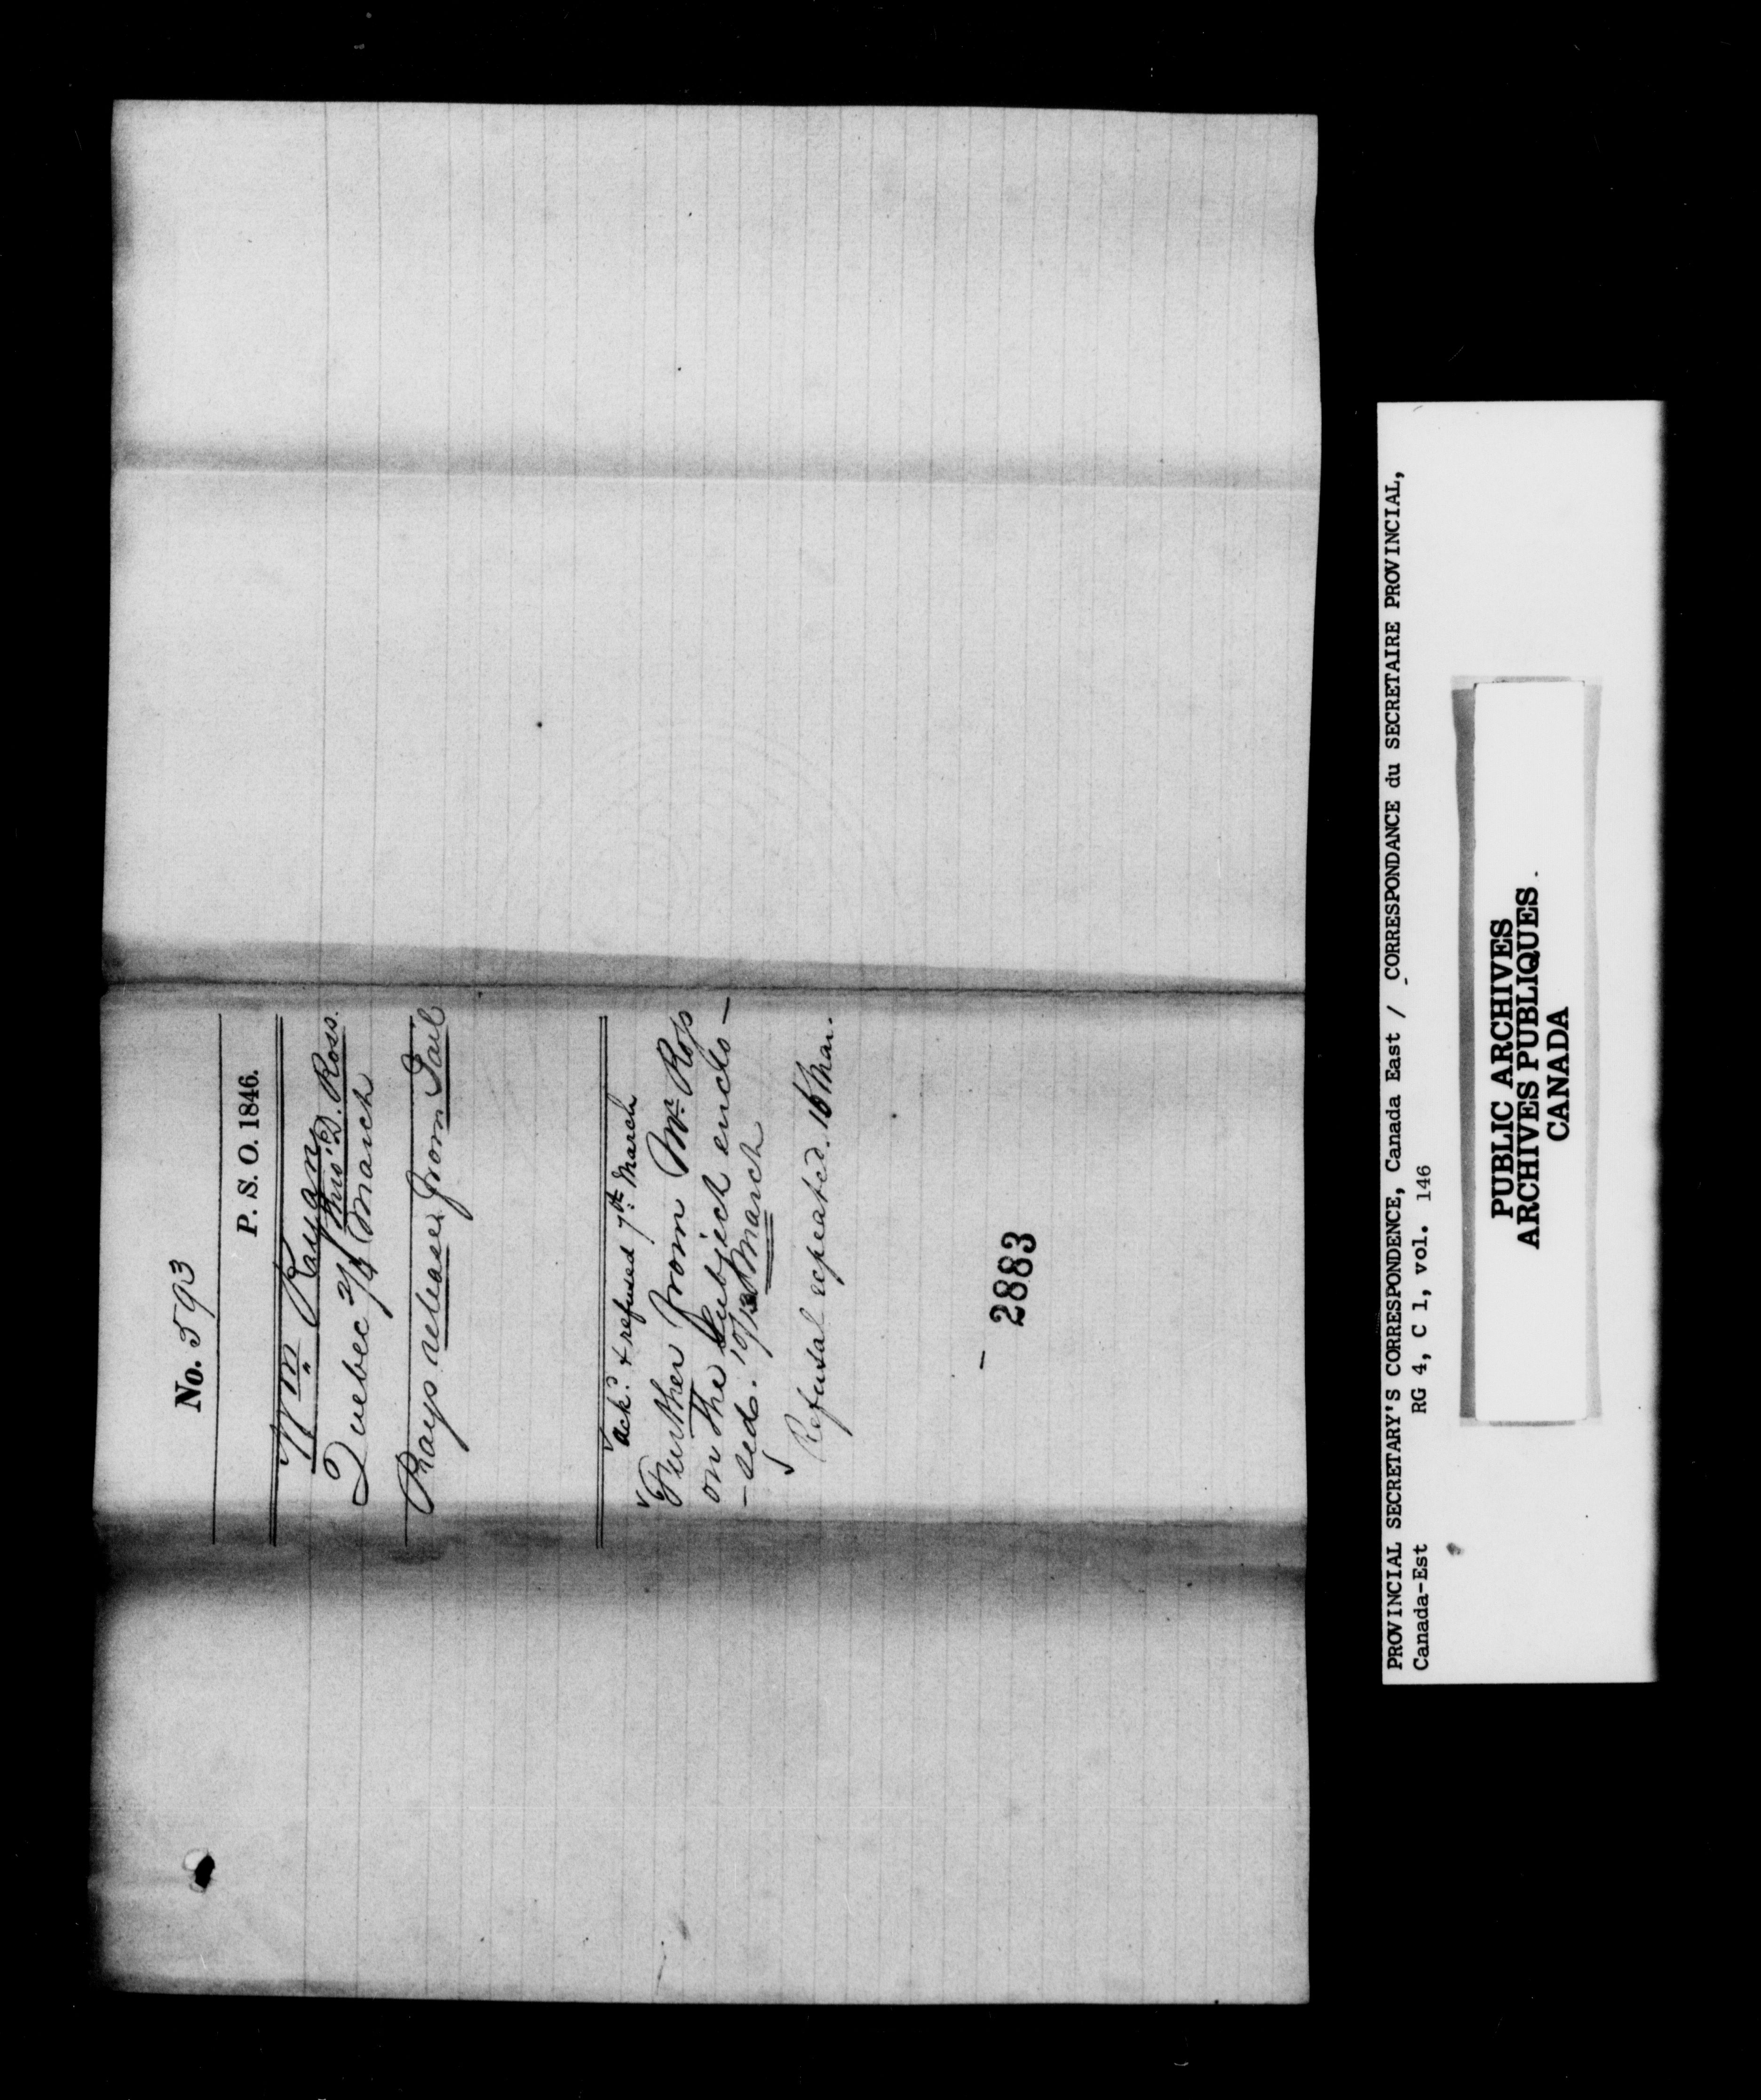 No. 593
P. S. O. 1846.
Wm Rayan
Thos. D. Ross.
Quebec 2/4 March
Prays release from Jail
Ackd. & refused 7th March
Further from Mr. Ross
on the Subject enclo-
-sed. 10/12 March
Refusal repeated. 16 Mar.
2883
PROVINCIAL SECRETARY'S CORRESPONDENCE, Canada East / CORRESPONDANCE du SECRETAIRE PROVINCIAL,
Canada-Est RG 4, C 1, vol. 146
PUBLIC ARCHIVES
ARCHIVES PUBLIQUES.
CANADA